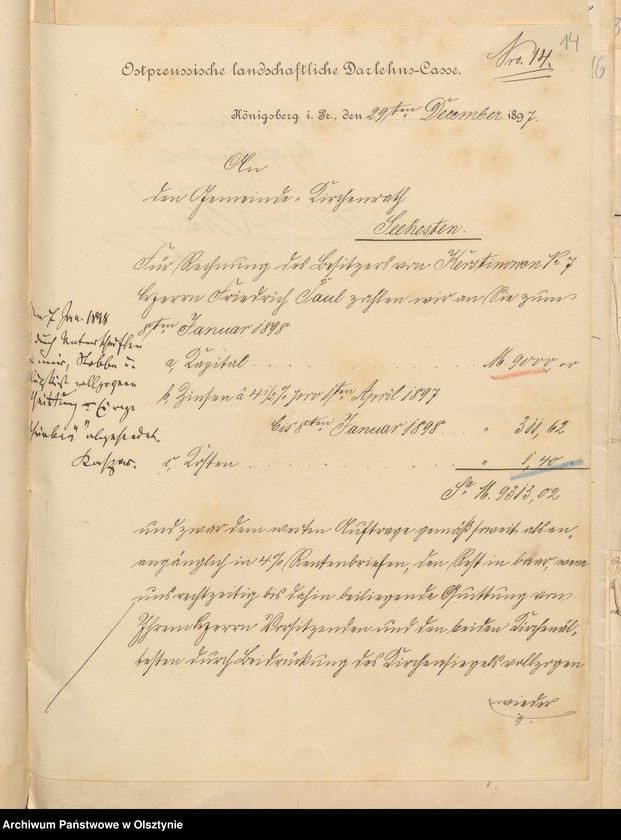 14
Nro. 14.
16
Ostpreussische landschaftliche Darlehns-Casse.
Königsberg i. Pr., den 29sten December 1897.
An
den Gemeinde-Kirchenrath
Seehesten.
Für Rechnung des Besitzers von No 7
Herrn Friedrich Paul zahlen wir an Sie zum
8ten Januar 1898
a, Kapital M. 9000
b, Zinsen à 4½% pro 1ten April 1897
bis 8ten Januar 1898 " 311,62
c, Kosten " 1,40
Sa. M. 9313,02
7 Jan. 1898
durch Unterschriften
vollzogene
Quittung
abgesendet.
und zwar dem werten Auftrage gemäß soweit als an-
angänglich in 4% Rentenbriefen, den Rest in baar, wenn
uns rechtzeitig bis dahin beiliegende Quittung von
Ihrem Herrn Vorsitzenden und den beiden Kirchenäl-
testen durch Beidrückung des Kirchensiegels vollzogen
wieder
Archiwum Państwowe w Olsztynie